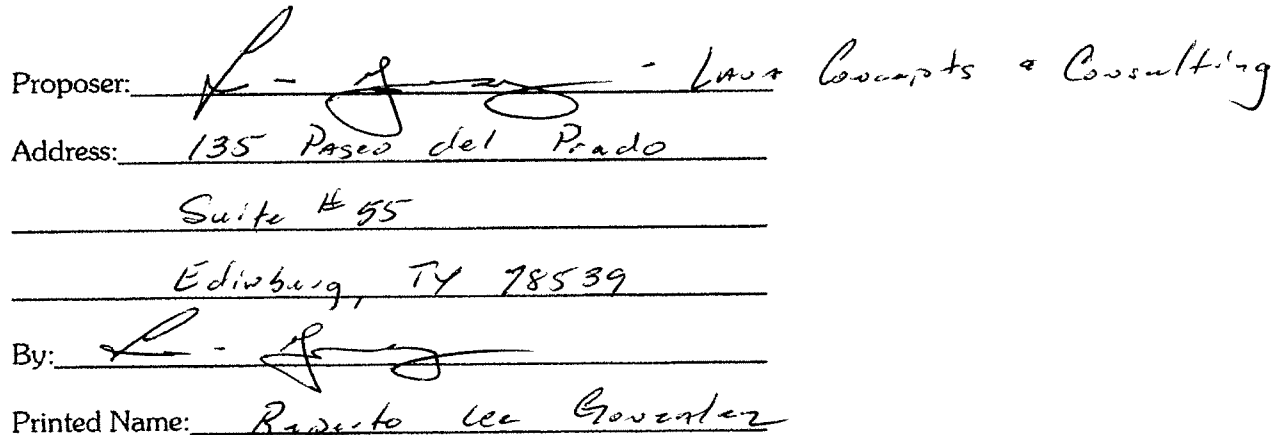 Proposer: - Lava Concepts & Consulting
Address: 135 Paseo del Prado
Suite # 55
Edinburg, TX 78539
By:
Printed Name: Lee Gonzalez